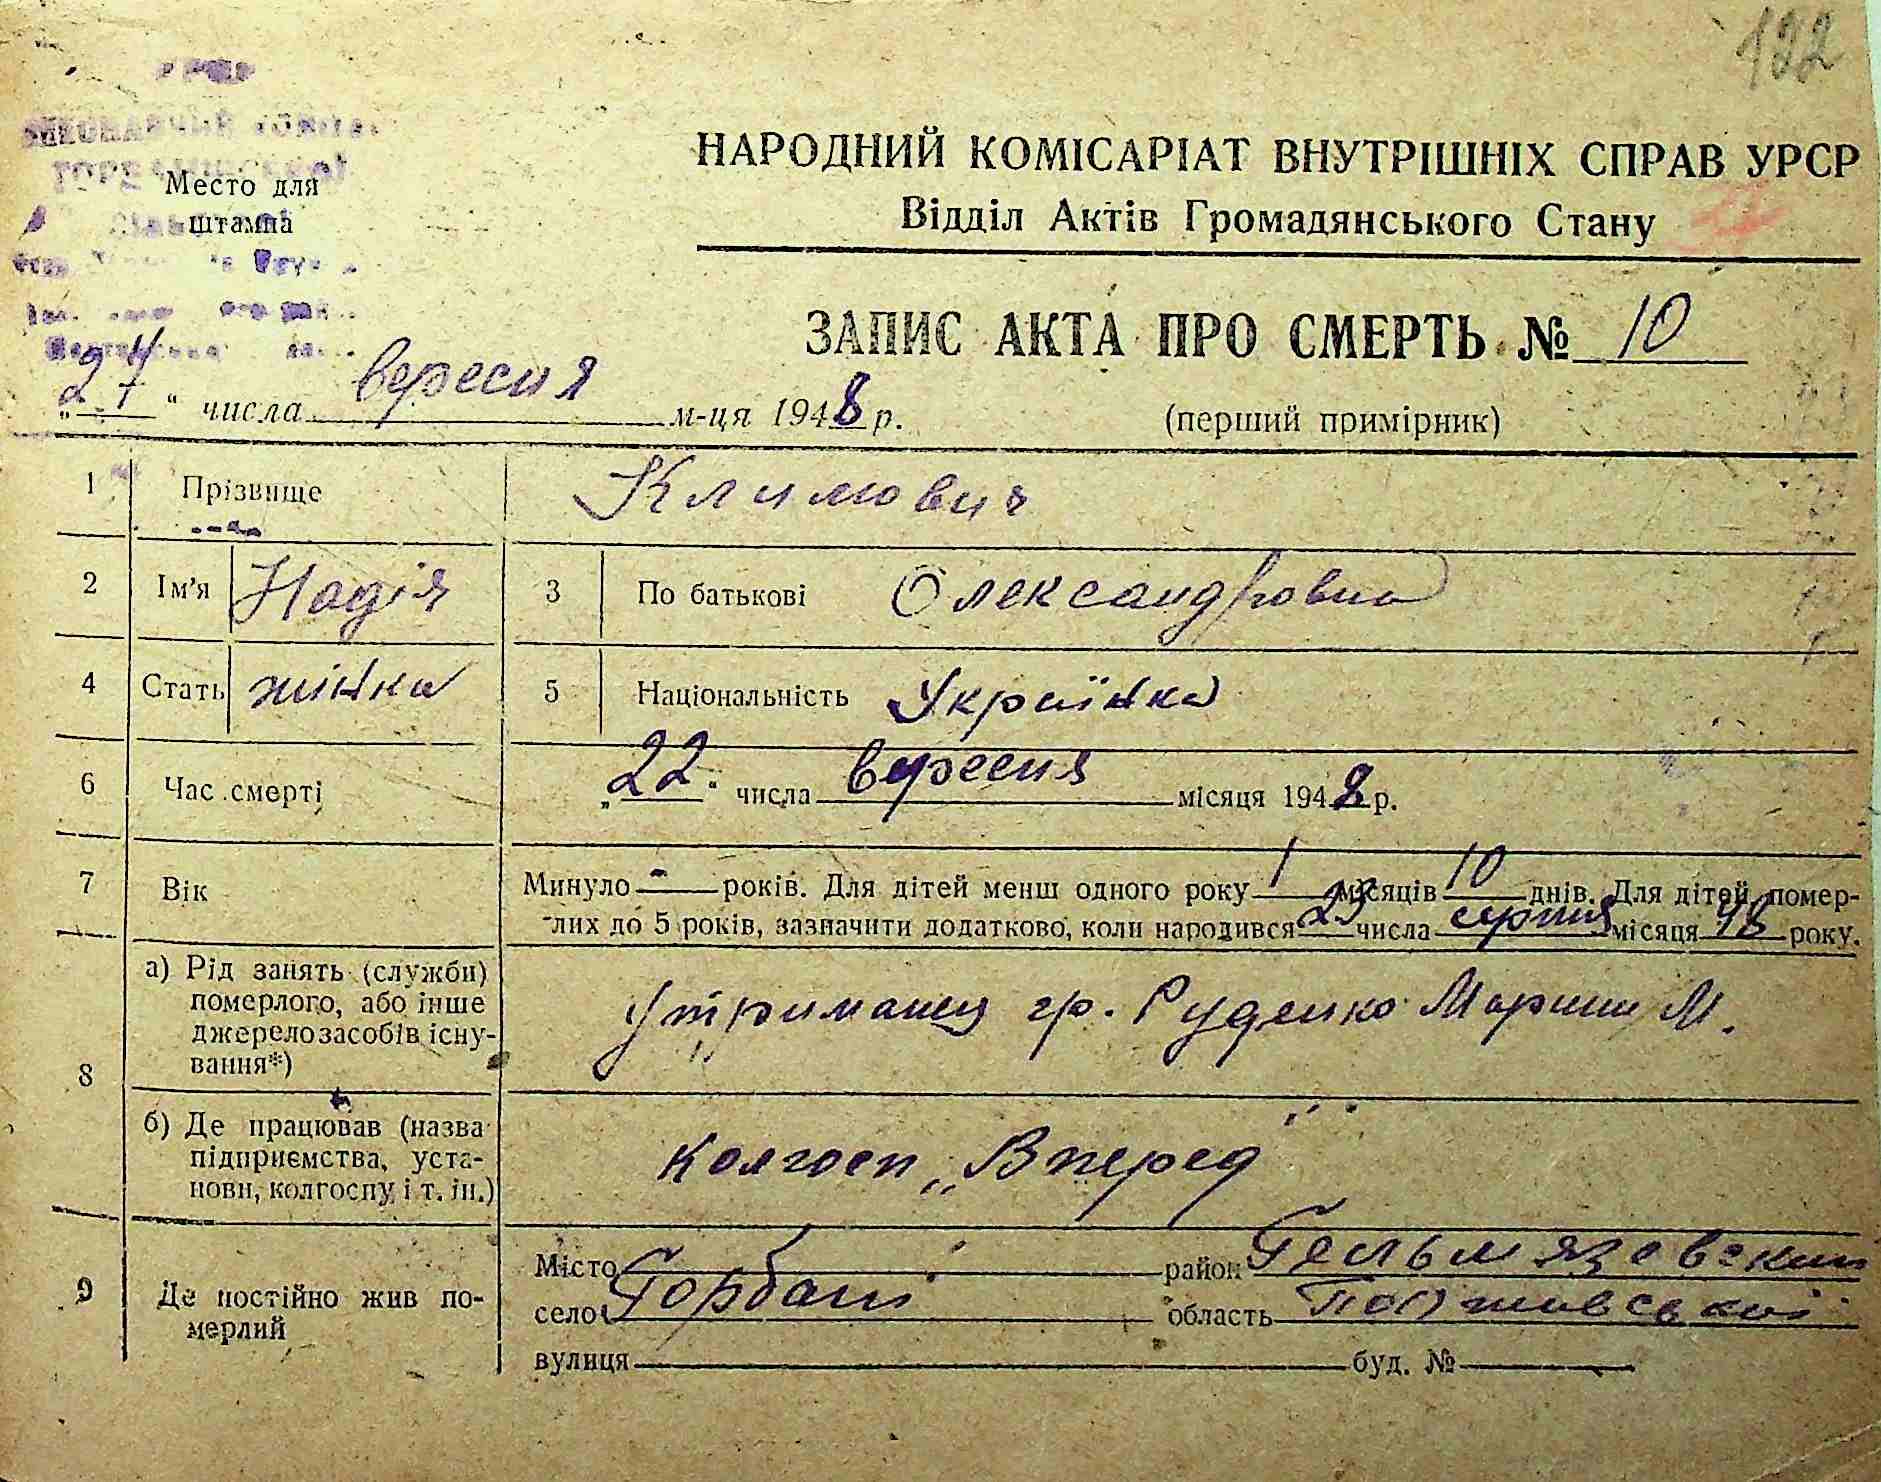 122
НАРОДНИЙ КОМІСАРІАТ ВНУТРІШНІХ СПРАВ УРСР
Відділ Актів Громадянського Стану
Место для
штампа
ЗАПИС АКТА ПРО СМЕРТЬ № 10
„27“ числа вересня м-ця 1948 р.
(перший примірник)
1 Прізвище Климович
2 Ім'я Надія 3 По батькові Олександровна
4 Стать жінка 5 Національність Українка
6 Час смерті „22“ числа вересня місяця 1948 р.
7 Вік Минуло - років. Для дітей менш одного року 1 місяців 10 днів. Для дітей помер-
лих до 5 років, зазначити додатково, коли народився 23 числа серпня місяця 48 року.
8 а) Рід занять (служби)
померлого, або інше
джерело засобів існу-
вання*)
Утриманец гр. Руденко Марини М.
б) Де працював (назва
підприємства, уста-
нови, колгоспу і т. ін.)
колгосп „Вперед"
9 Де постійно жив по-
мерлий
Місто район Гельмязовский
село Горбані область Полтавської
вулиця буд. №